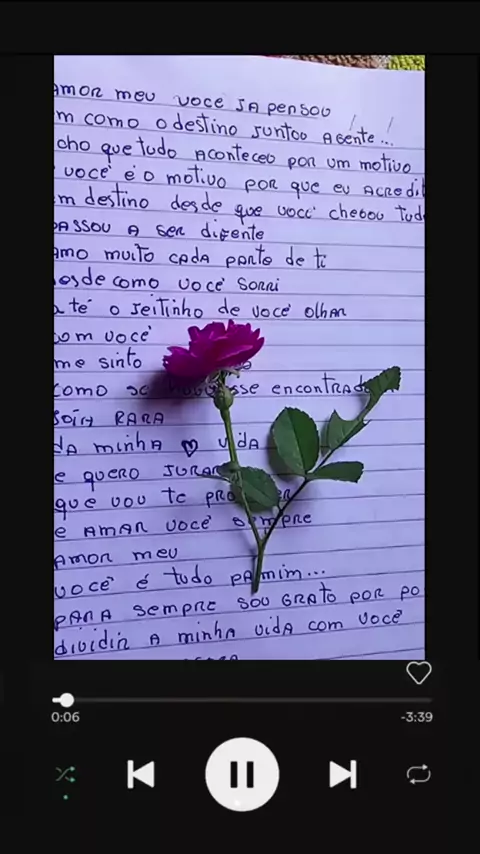 AMOR MEU VOCÊ JA PENSOU !
m como o destino juntou Agente...!
cho que tudo Aconteceu por um motivo
você é o motivo por que eu Acredi
m destino desde que você chegou tud
passou A ser difente
amo muito cada parte de ti
esde como você sorri
até o jeitinho de você olhar
com você
me sinto
como se encontrad
Jóia RARA
DA minha ♡ vida
e quero jurar
que vou te
e AMAR você sempre
AMOR meu
você é tudo pa mim...
PARA sempre sou GRATO por po
dividir A minha vida com você
0:06
-3:39